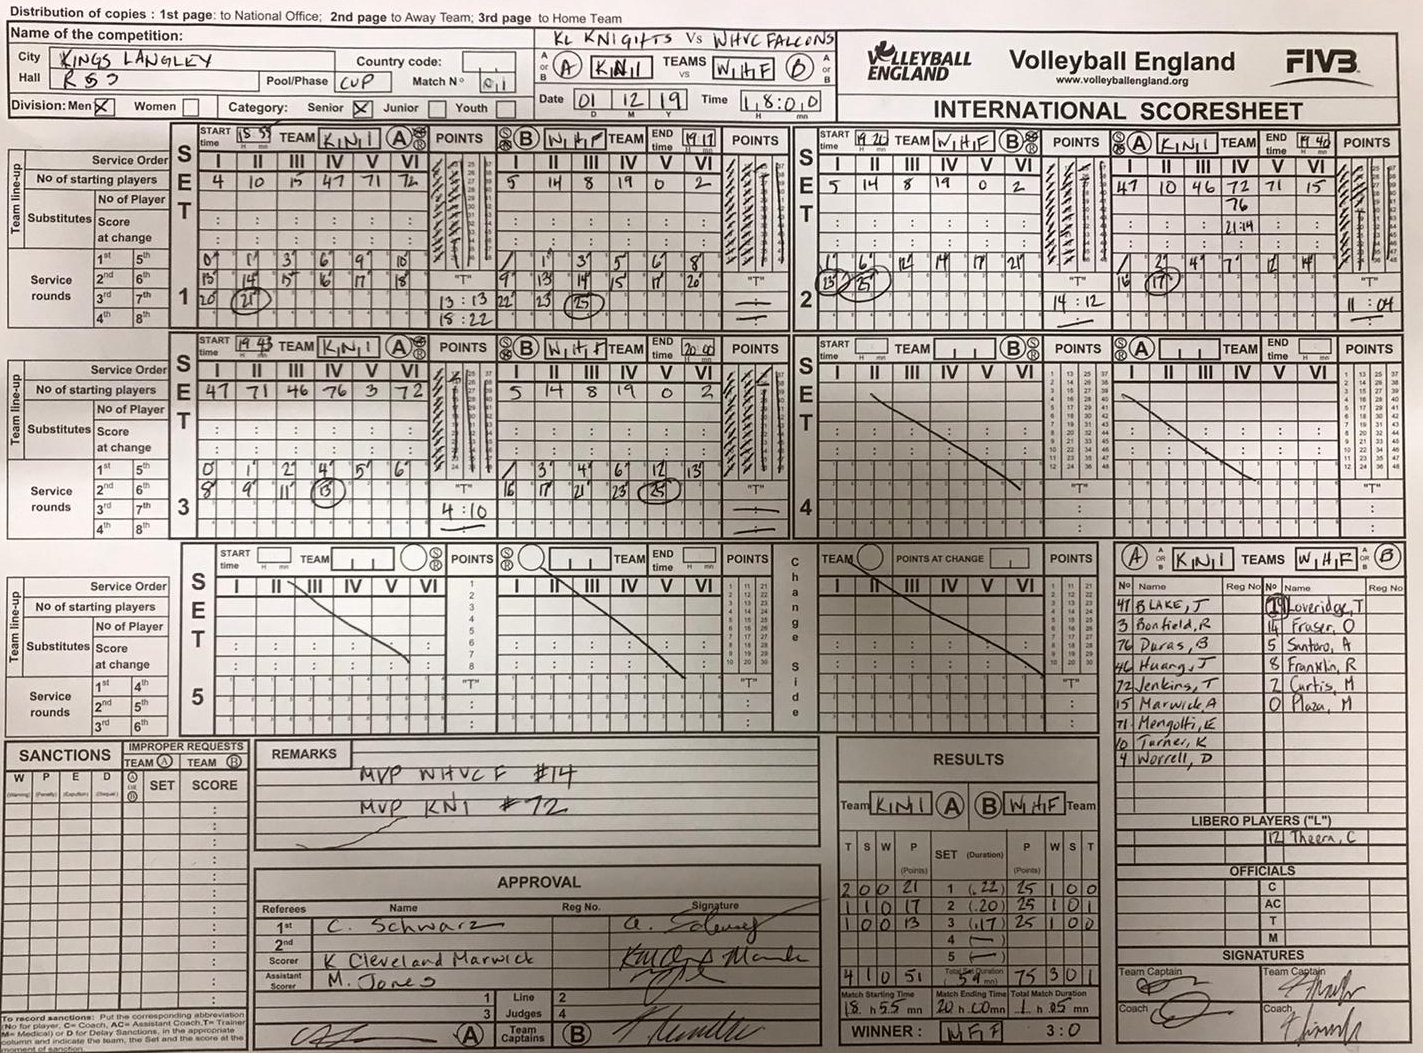 Distribution of copies : 1st page: to National Office; 2nd page to Away Team; 3rd page to Home Team
Name of the competition:
KL KNIGHTS Vs WHVC FALCONS
City KINGS LANGLEY Country code:
Hall RSS Pool/Phase CUP Match No 01
A or B A KNI TEAMS vs WHF B A or B
Division: Men X Women Category: Senior X Junior Youth
Date 01 12 19 Time 18:00
D M Y H mn
VOLLEYBALL ENGLAND
Volleyball England
www.volleyballengland.org
FIVB
INTERNATIONAL SCORESHEET
Team line-up
Service Order
No of starting players
Substitutes
No of Player
Score at change
Service rounds
1st 5th
2nd 6th
3rd 7th
4th 8th
SET 1
START time 18 55 TEAM KNI A POINTS
I II III IV V VI
4 10 15 47 71 72
0 1 3 6 9 10
13 14 15 16 17 18
20 21
"T"
13:13
18:22
B WHF TEAM END time 19 17 POINTS
I II III IV V VI
5 14 8 19 0 2
/ 1 3 5 6 8
9 13 14 15 17 20
22 23 25
"T"
SET 2
START time 19 20 TEAM WHF B POINTS
I II III IV V VI
5 14 8 19 0 2
1 6 12 14 17 21
23 25
"T"
14:12
A KNI TEAM END time 19 40 POINTS
I II III IV V VI
47 10 46 72 71 15
76
21:14
/ 2 4 7 12 14
16 17
"T"
11:04
Team line-up
Service Order
No of starting players
Substitutes
No of Player
Score at change
Service rounds
1st 5th
2nd 6th
3rd 7th
4th 8th
SET 3
START time 19 43 TEAM KNI A POINTS
I II III IV V VI
47 71 46 76 3 72
0 1 2 4 5 6
8 9 11 13
"T"
4:10
B WHF TEAM END time 20 00 POINTS
I II III IV V VI
5 14 8 19 0 2
/ 3 4 6 12 13
16 17 21 23 25
"T"
SET 4
START time TEAM B POINTS
I II III IV V VI
"T"
A TEAM END time POINTS
I II III IV V VI
"T"
Team line-up
Service Order
No of starting players
Substitutes
No of Player
Score at change
Service rounds
1st 4th
2nd 5th
3rd 6th
SET 5
START time TEAM POINTS
I II III IV V VI
"T"
TEAM END time POINTS
I II III IV V VI
"T"
Change Side
TEAM POINTS AT CHANGE POINTS
I II III IV V VI
"T"
A KNI TEAMS WHF B
No Name Reg No No Name Reg No
47 BLAKE, J 19 Loveridge, T
3 Bonfield, R 14 Fraser, O
76 Duras, B 5 Santoro, A
46 Huang, J 8 Franklin, R
72 Jenkins, T 2 Curtis, M
15 Marwick A 0 Plaza, M
71 Mengotti, E
10 Turner, K
4 Worrell, D
LIBERO PLAYERS ("L")
12 Theera, C
OFFICIALS
C
AC
T
M
SIGNATURES
Team Captain Team Captain
Coach Coach
SANCTIONS
IMPROPER REQUESTS
TEAM A TEAM B
W P E D A or B SET SCORE
(Warning) (Penalty) (Expulsion) (Disqual.)
To record sanctions: Put the corresponding abbreviation
(No for player, C= Coach, AC= Assistant Coach, T= Trainer
M= Medical) or D for Delay Sanctions, in the appropriate
column and indicate the team, the Set and the score at the
moment of sanction.
REMARKS
MVP WHVC F #14
MVP KNI #72
APPROVAL
Referees Name Reg No. Signature
1st C. Schwarz
2nd
Scorer K Cleveland Marwick
Assistant Scorer M. Jones
1 Line 2
3 Judges 4
A Team Captains B
RESULTS
Team KNI A B WHF Team
T S W P (Points) SET (Duration) P (Points) W S T
2 0 0 21 1 (22) 25 1 0 0
1 1 0 17 2 (20) 25 1 0 1
1 0 0 13 3 (17) 25 1 0 0
4 ( )
5 ( )
4 1 0 51 Total Set Duration 59 mn) 75 3 0 1
Match Starting Time Match Ending Time Total Match Duration
18 h 55 mn 20 h 00 mn 1 h 05 mn
WINNER : WHF 3:0